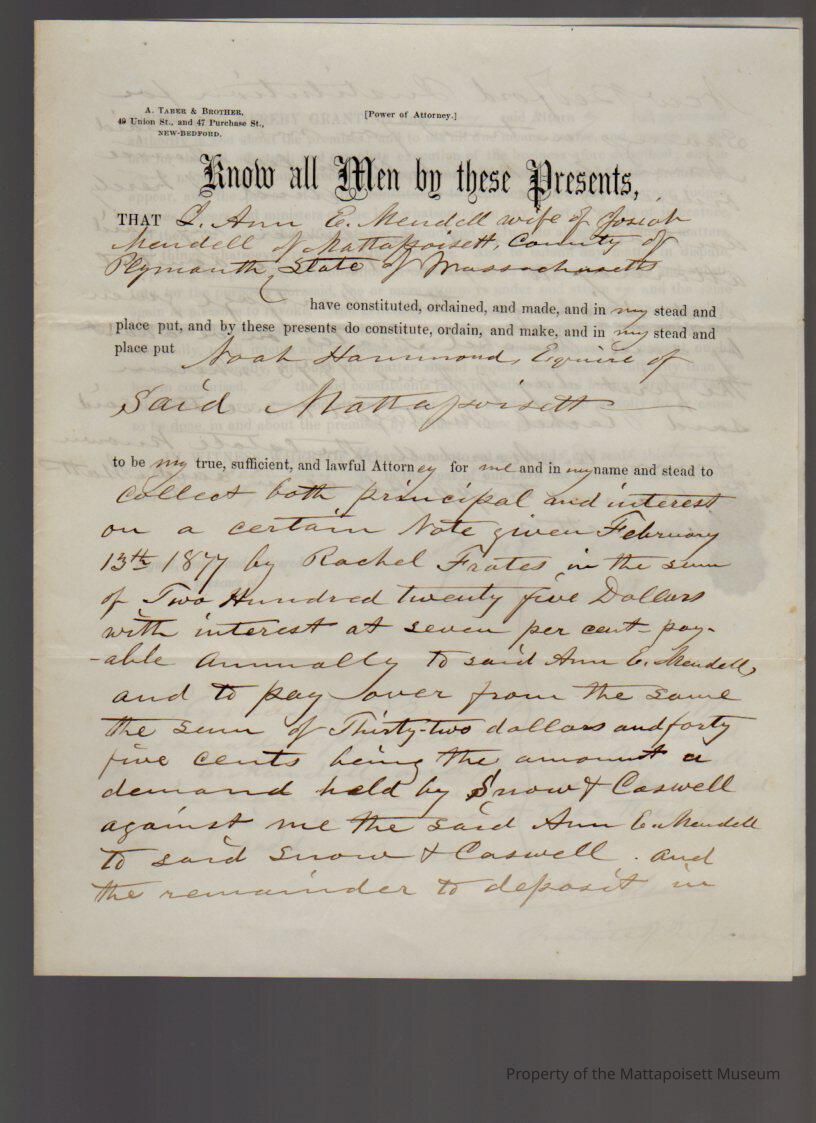 A. TABER & BROTHER,
49 Union St., and 47 Purchase St.,
NEW-BEDFORD.
[Power of Attorney.]
Know all Men by these Presents,
THAT I, Ann E. Mendell wife of Josiah
Mendell of Mattapoisett, County of
Plymouth, State of Massachusetts
have constituted, ordained, and made, and in my stead and
place put, and by these presents do constitute, ordain, and make, and in my stead and
place put Noah Hammond, Esquire of
Said Mattapoisett
to be my true, sufficient, and lawful Attorney for me and in my name and stead to
collect both principal and interest
on a certain Note given February
13th 1877 by Rachel Frates in the sum
of Two Hundred twenty five Dollars
with interest at seven per cent pay-
-able annually to said Ann E. Mendell,
and to pay over from the same
the sum of Thirty-two dollars and forty
five cents being the amount a
demand held by Snow & Caswell
against me the said Ann E. Mendell
to said Snow & Caswell. and
the remainder to deposit in
Property of the Mattapoisett Museum